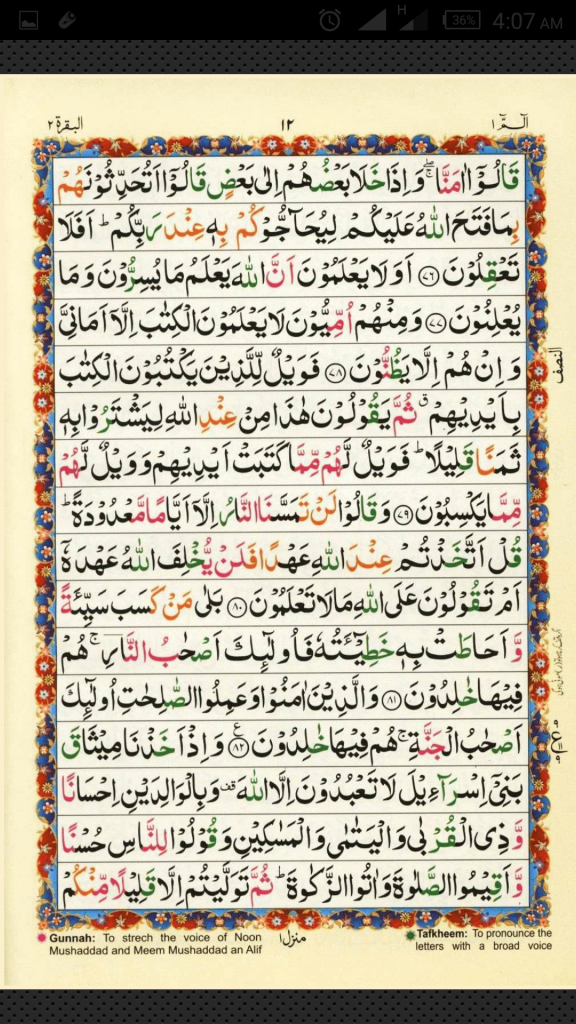 H 36% 4:07 AM
الٓمّٓ ۱ ۱۲ البقرة ۲
قَالُوْۤا اٰمَنَّا ۖۚ وَ اِذَا خَلَا بَعْضُهُمْ اِلٰى بَعْضٍ قَالُوْۤا اَتُحَدِّثُوْنَهُمْ
بِمَا فَتَحَ اللّٰهُ عَلَيْكُمْ لِيُحَآجُّوْكُمْ بِهٖ عِنْدَ رَبِّكُمْ ؕ اَفَلَا
تَعْقِلُوْنَ ﴿۷۶﴾ اَوَ لَا يَعْلَمُوْنَ اَنَّ اللّٰهَ يَعْلَمُ مَا يُسِرُّوْنَ وَ مَا
يُعْلِنُوْنَ ﴿۷۷﴾ وَ مِنْهُمْ اُمِّيُّوْنَ لَا يَعْلَمُوْنَ الْكِتٰبَ اِلَّاۤ اَمَانِيَّ
وَ اِنْ هُمْ اِلَّا يَظُنُّوْنَ ﴿۷۸﴾ فَوَيْلٌ لِّلَّذِيْنَ يَكْتُبُوْنَ الْكِتٰبَ
النصف
بِاَيْدِيْهِمْ ۗ ثُمَّ يَقُوْلُوْنَ هٰذَا مِنْ عِنْدِ اللّٰهِ لِيَشْتَرُوْا بِهٖ
ثَمَنًا قَلِيْلًا ؕ فَوَيْلٌ لَّهُمْ مِّمَّا كَتَبَتْ اَيْدِيْهِمْ وَ وَيْلٌ لَّهُمْ
مِّمَّا يَكْسِبُوْنَ ﴿۷۹﴾ وَ قَالُوْا لَنْ تَمَسَّنَا النَّارُ اِلَّاۤ اَيَّامًا مَّعْدُوْدَةً ؕ
قُلْ اَتَّخَذْتُمْ عِنْدَ اللّٰهِ عَهْدًا فَلَنْ يُّخْلِفَ اللّٰهُ عَهْدَهٗۤ
اَمْ تَقُوْلُوْنَ عَلَى اللّٰهِ مَا لَا تَعْلَمُوْنَ ﴿۸۰﴾ بَلٰى مَنْ كَسَبَ سَيِّئَةً
وَّ اَحَاطَتْ بِهٖ خَطِيْٓـَٔتُهٗ فَاُولٰٓئِكَ اَصْحٰبُ النَّارِ ۚ هُمْ
فِيْهَا خٰلِدُوْنَ ﴿۸۱﴾ وَ الَّذِيْنَ اٰمَنُوْا وَ عَمِلُوا الصّٰلِحٰتِ اُولٰٓئِكَ
اَصْحٰبُ الْجَنَّةِ ۚ هُمْ فِيْهَا خٰلِدُوْنَ ﴿۸۲﴾ ع وَ اِذْ اَخَذْنَا مِيْثَاقَ
بَنِيْۤ اِسْرَآءِيْلَ لَا تَعْبُدُوْنَ اِلَّا اللّٰهَ قف وَ بِالْوَالِدَيْنِ اِحْسَانًا
وَّ ذِي الْقُرْبٰى وَ الْيَتٰمٰى وَ الْمَسٰكِيْنِ وَ قُوْلُوْا لِلنَّاسِ حُسْنًا
وَّ اَقِيْمُوا الصَّلٰوةَ وَ اٰتُوا الزَّكٰوةَ ؕ ثُمَّ تَوَلَّيْتُمْ اِلَّا قَلِيْلًا مِّنْكُمْ
Gunnah: To strech the voice of Noon
Mushaddad and Meem Mushaddad an Alif
منزل ۱
Tafkheem: To pronounce the
letters with a broad voice